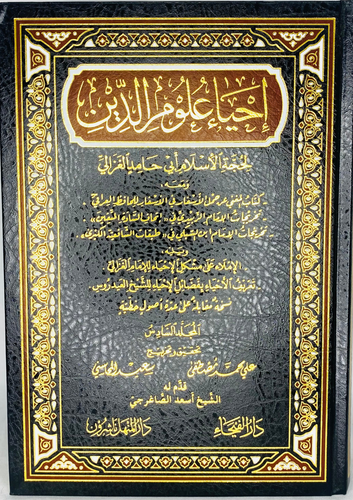 إحياء علوم الدين
لحجة الإسلام أبي حامد الغزالي
ومعه
- كتاب المغني عن حمل الأسفار في الأسفار للحافظ العراقي -
- تخريجات الإمام الزبيدي في «إتحاف السادة المتقين» -
- تخريجات الإمام ابن السبكي في «طبقات الشافعية الكبرى» -
ويليه
الإملاء على مشكل الإحياء للإمام الغزالي
تعريف الأحياء بفضائل الإحياء للشيخ العيدروس
نسخة مقابلة على عدة أصول خطية
المجلد السادس
تحقيق وتخريج
علي محمد مصطفى سعيد المحاسني
قدم له
الشيخ أسعد الصاغرجي
دار الفيحاء دار المنهل ناشرون